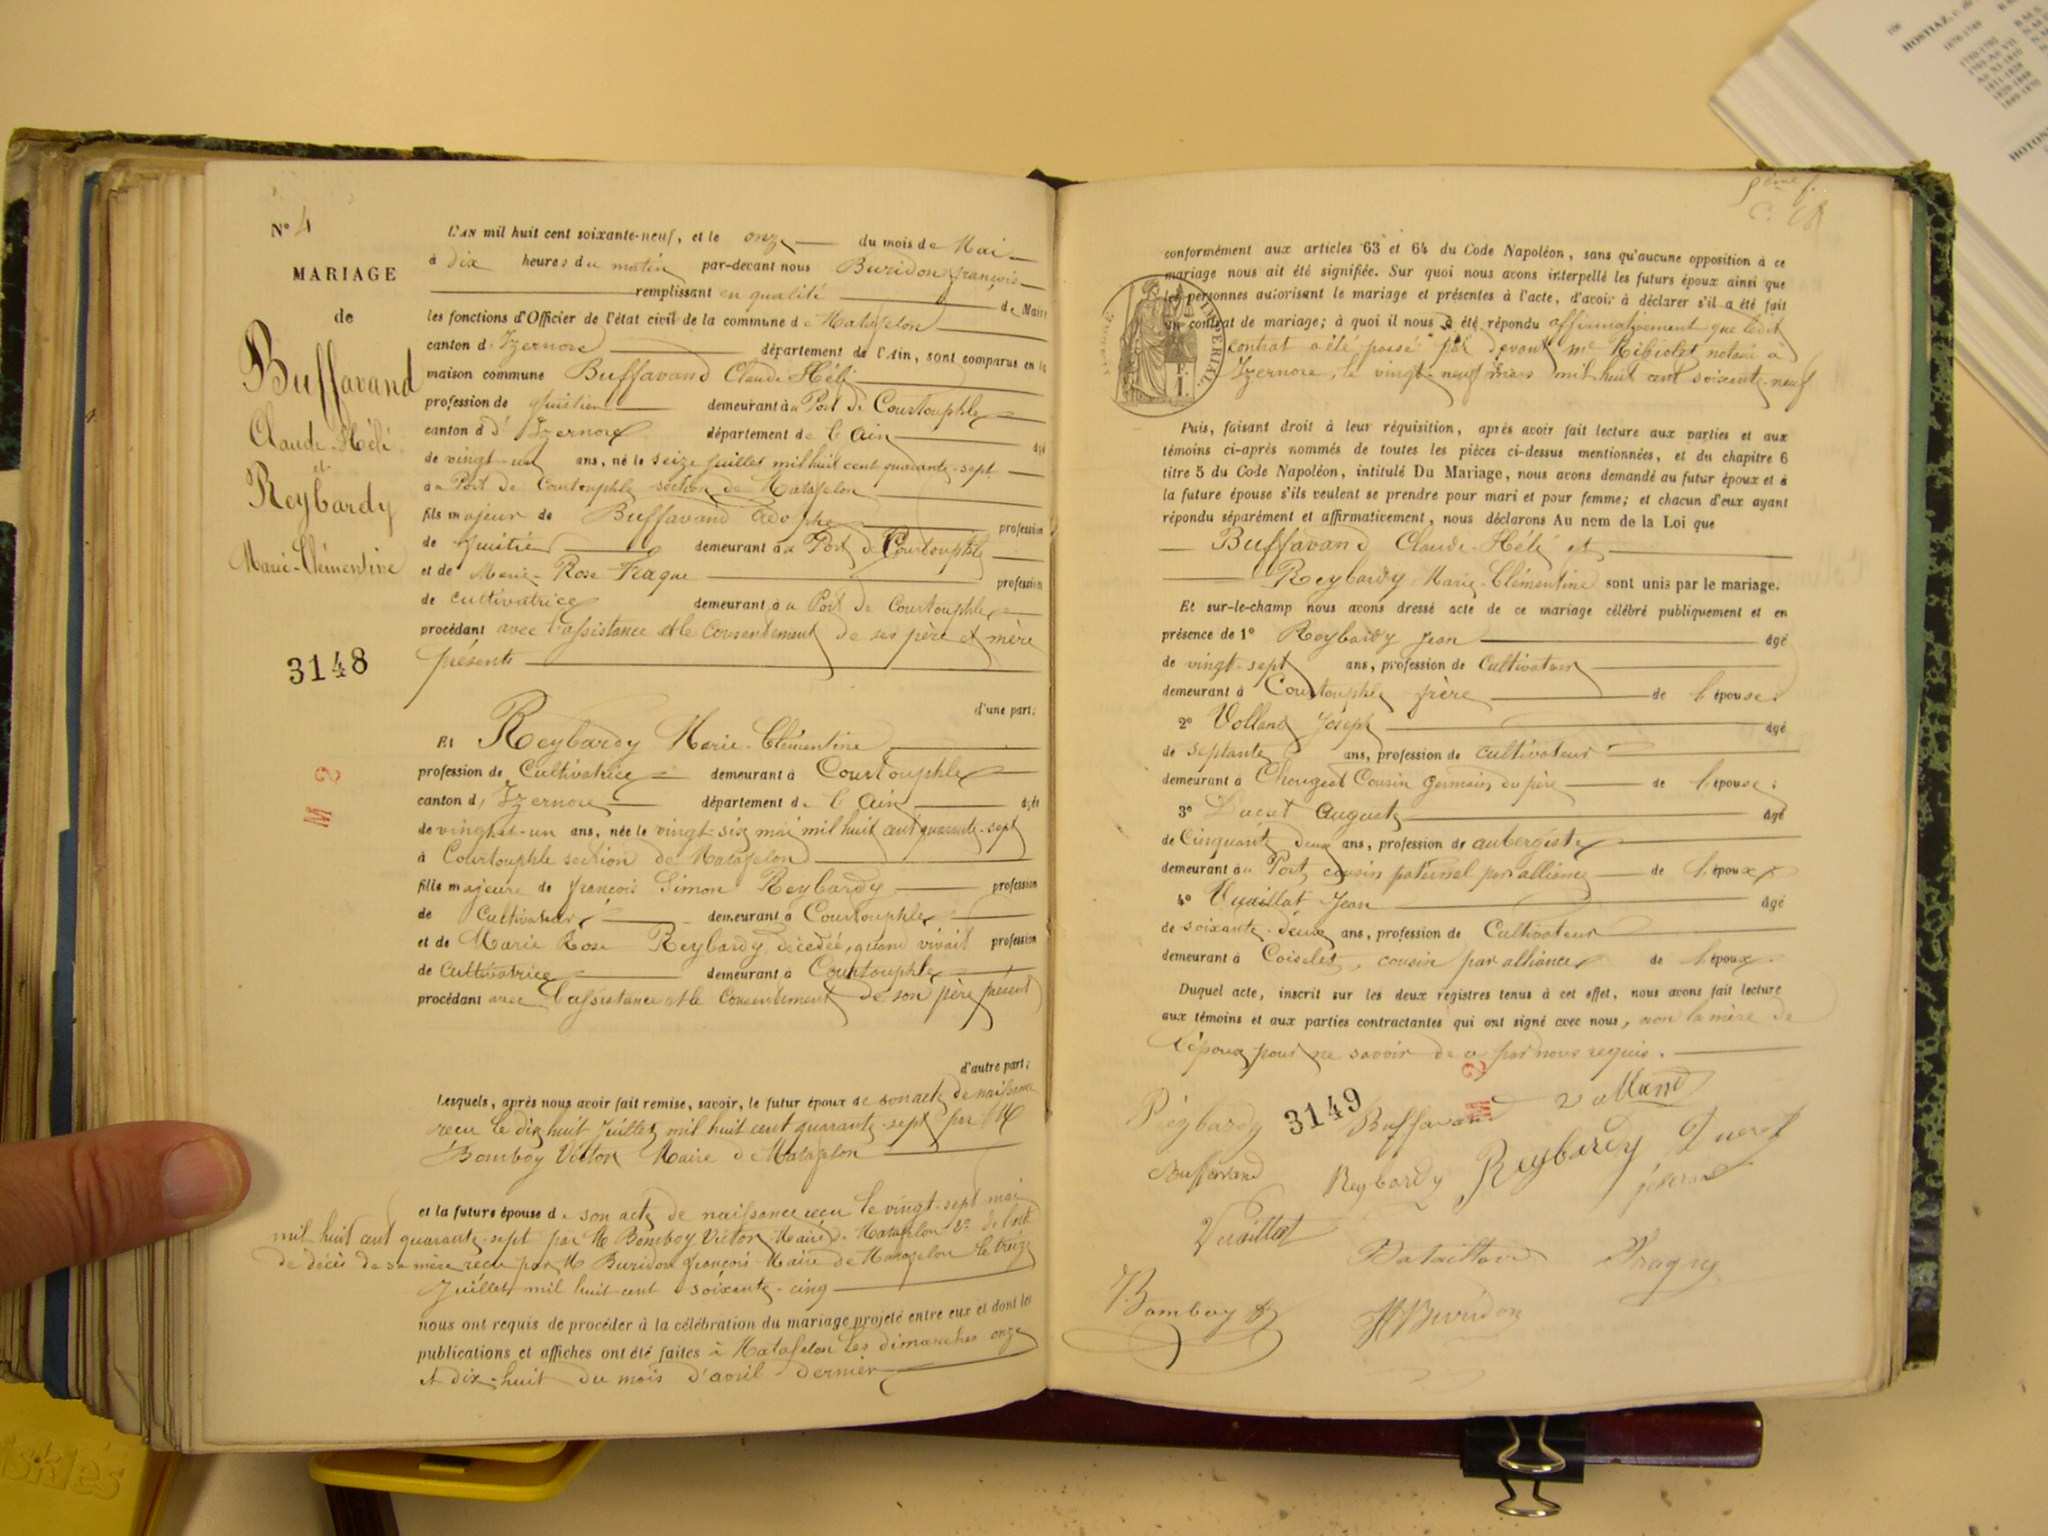 N° 4
MARIAGE
de
Buffavand
Claude-Héli
et
Reybardy
Marie-Clémentine
3148
M 2
L'AN mil huit cent soixante-neuf, et le onze du mois de Mai
à dix heures du matin par-devant nous Buridon françois
remplissant en qualité de Maire
les fonctions d'Officier de l'état civil de la commune de Matafelon
canton d'Izernore département de l'Ain, sont comparus en la
maison commune Buffavand Claude Héli
profession de demeurant à au Port de Courtouphle
canton d d' Izernore département de l'Ain âgé
de vingt-un ans, né le seize juillet mil huit cent quarante-sept
à au Port de Courtouphle section de Matafelon
fils majeur de Buffavand Adolphe profession
de demeurant à au Port de Courtouphle
et de Marie-Rose profession
de cultivatrice demeurant à au Port de Courtouphle
procédant avec l'assistance et le consentement de ses père et mère
présents
d'une part;
Et Reybardy Marie-Clémentine
profession de Cultivatrice demeurant à Courtouphle
canton d'Izernore département de l'Ain âgée
de vingt-et-un ans, née le vingt-six mai mil huit cent quarante-sept
à Courtouphle section de Matafelon
fille majeure de françois Simon Reybardy profession
de Cultivateur demeurant à Courtouphle
et de Marie Rose Reybardy décédée, quand vivait profession
de Cultivatrice demeurant à Courtouphle
procédant avec l'assistance et le consentement de son père présent
d'autre part;
Lesquels, après nous avoir fait remise, savoir, le futur époux de son acte de naissance
reçu le dix huit Juillet mil huit cent quarante-sept par M
Bomboy Victor Maire de Matafelon
et la future épouse de son acte de naissance reçu le vingt-sept mai
mil huit cent quarante-sept par M Bomboy Victor Maire de Matafelon 2° de l'acte
de décès de sa mère reçu par M Buridon françois Maire de Matafelon le treize
Juillet mil huit cent soixante-cinq
nous ont requis de procéder à la célébration du mariage projeté entre eux et dont les
publications et affiches ont été faites à Matafelon les dimanches onze
et dix-huit du mois d'avril dernier
conformément aux articles 63 et 64 du Code Napoléon, sans qu'aucune opposition à ce
mariage nous ait été signifiée. Sur quoi nous avons interpellé les futurs époux ainsi que
les personnes autorisant le mariage et présentes à l'acte, d'avoir à déclarer s'il a été fait
un contrat de mariage; à quoi il nous a été répondu affirmativement que ledit
contrat a été passé par devant me notaire à
Izernore, le vingt-neuf mars mil huit cent soixante-neuf
IMPERIAL
Puis, faisant droit à leur réquisition, après avoir fait lecture aux parties et aux
témoins ci-après nommés de toutes les pièces ci-dessus mentionnées, et du chapitre 6
titre 5 du Code Napoléon, intitulé Du Mariage, nous avons demandé au futur époux et à
la future épouse s'ils veulent se prendre pour mari et pour femme; et chacun d'eux ayant
répondu séparément et affirmativement, nous déclarons Au nom de la Loi que
Buffavand Claude-Héli et
Reybardy Marie-Clémentine sont unis par le mariage.
Et sur-le-champ nous avons dressé acte de ce mariage célébré publiquement et en
présence de 1° Reybardy Jean âgé
de vingt-sept ans, profession de Cultivateur
demeurant à Courtouphle frère de l'épouse;
2° Volland Joseph âgé
de septante ans, profession de cultivateur
demeurant à Chougeat Cousin germain du père de l'épouse;
3° Ducret Auguste âgé
de Cinquante deux ans, profession de aubergiste
demeurant à au Port, cousin paternel par alliance de l'époux
4° Vuaillat Jean âgé
de soixante-deux ans, profession de Cultivateur
demeurant à Coiselet, cousin par alliance de l'époux.
Duquel acte, inscrit sur les deux registres tenus à cet effet, nous avons fait lecture
aux témoins et aux parties contractantes qui ont signé avec nous, non la mère de
l'époux pour ne savoir de ce par nous requis.
Reybardy 3149 Buffavand volland
M 2
Buffavand Reybardy Reybardy
Vuaillat Bataillard
Bomboy Buridon
HOSTIAZ